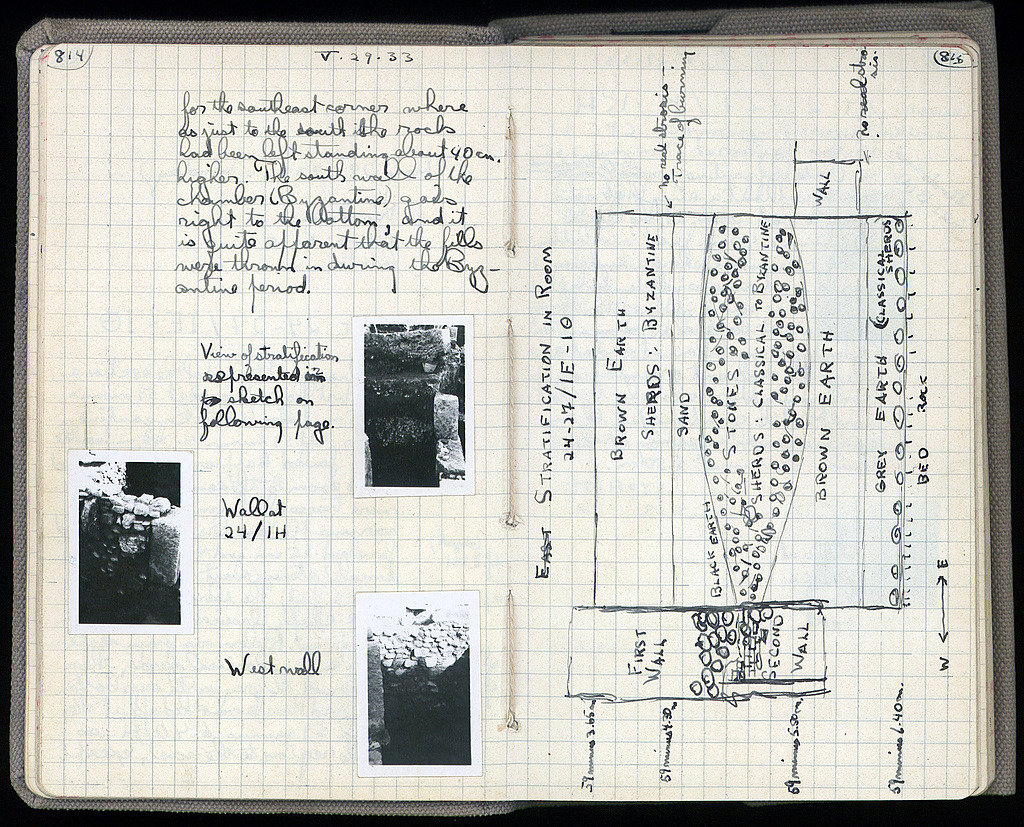 814
V·29·33
for the southeast corner where
as just to the south the rock
had been left standing about 40 cm.
higher. The south wall of the
chamber (Byzantine) goes
right to the bottom, and it
is quite apparent that the fills
were thrown in during the Byz-
antine period.
View of stratification
represented in
sketch on
following page.
Wall at
24/IH
West wall
815
no real strosis -
trace of burning
no real stro-
sis.
EAST STRATIFICATION IN ROOM
24-27/IE-10
BROWN EARTH
SHERDS: BYZANTINE
SAND
BLACK EARTH
STONES
SHERDS: CLASSICAL TO BYZANTINE
BROWN EARTH
WALL
GREY EARTH (CLASSICAL
SHERDS
BED ROCK
FIRST
WALL
SECOND
WALL
W E
59 minus 3.65 m.
59 minus 4.30 m.
59 minus 5.50 m.
59 minus 6.40 m.